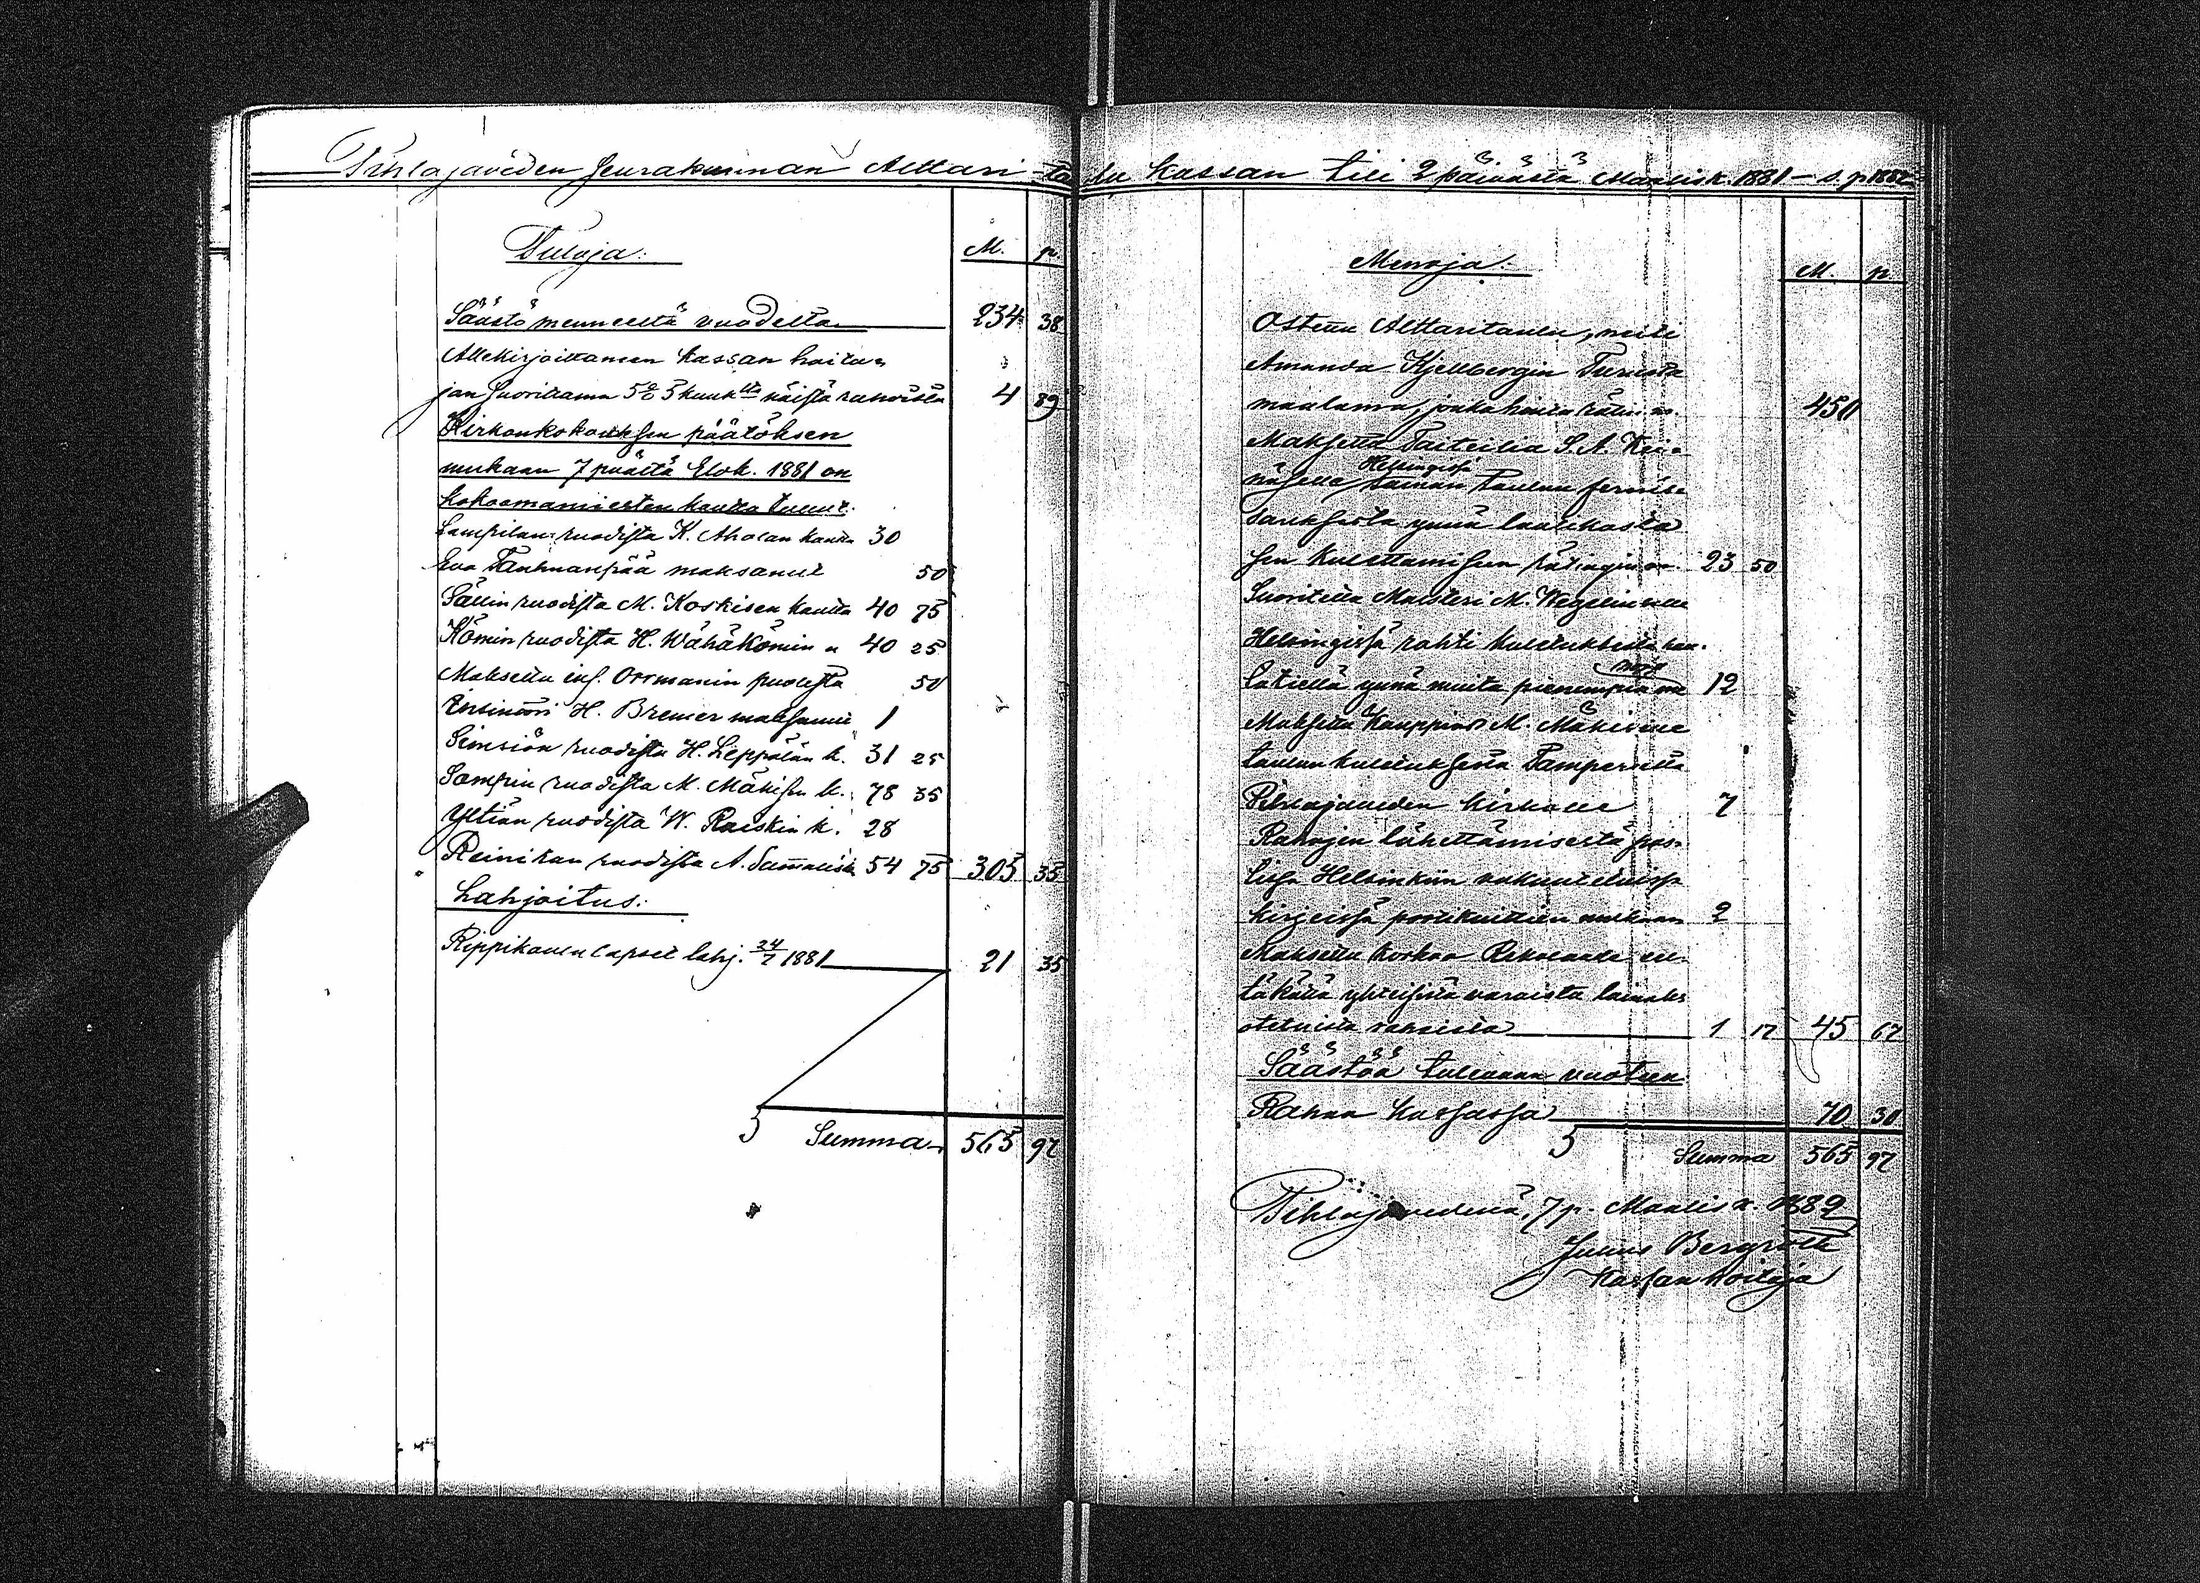 Pihlajaveden Seurakunnan Alttari-taulu Kassan tili 2 päivästä Maalisk. 1881 — s. p. 1882
Tuloja: M. p.
Säästö menneeltä vuodelta 234 38
Allekirjoittaneen kassan hoita-
jan Suorittama 5% 5 kuuk näistä rahoista 4 89
Kirkonkokouksen päätöksen
mukaan 7 päästä Elok. 1881 on
kokoomamiesten kautta tullut.
Lampilan ruodista K. Aholan kautta 30
Eva Tanhuanpää maksanut 50
Sällin ruodista M. Koskisen kautta 40 75
Kömin ruodista H. Wähäkömin " 40 25
Maksettu inh. Orrmanin puolesta 50
Insinööri H. Bremer maksanut 1
Simsiön ruodista H. Leppälän k. 31 25
Sompin ruodista M. Mäkisen k. 78 35
Yltiän ruodista W. Raiskin k. 28
Reinikan ruodista A. 54 75 305 35
Lahjoitus:
Rippikoulu lapset lahj. 24/7 1881 21 35
Summa 565 97
Menoja: M. p.
Ostettu Alttaritaulu, neiti
Amanda Kjellbergin Turusta
maalama, jonka hinta 450
Maksettu Taiteilia S. A. Kei-
näselle Helsingissä saman taulun fernis-
sauksesta ynnä laatikosta
sen kulettamiseen 23 50
Suoritettu Maisteri M. Wegeliukselle
Helsingissä rahti kuletuksesta
ynnä muita pienempiä 12
Maksettu Kauppias M.
taulun kuletuksesta Tampereelta
Pihlajaveden kirkolle 7
Rahojen lähettämisestä pos-
tissa Helsinkiin vakuutetuissa
kirjeissä postikuittien mukaan 2
Maksettu korkoa
yhteisistä varoista lainaks
otetuista rahoista 1 17 45 67
Säästöä tulevaan vuoteen
Rahaa kassassa 70 30
Summa 565 97
Pihlajavedellä, 7 p. Maalisk. 1882
Julius Bergroth
Kassan hoitaja